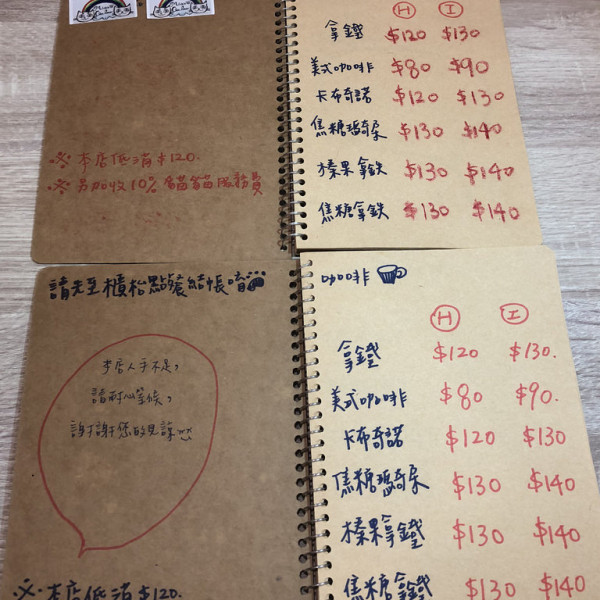 ※ 本店低消 $120.
※ 另加收10% 貓貓服務費
H I
拿鐵 $120 $130
美式咖啡 $80 $90
卡布奇諾 $120 $130
焦糖瑪奇朵 $130 $140
榛果拿鉄 $130 $140
焦糖拿鉄 $130 $140
請先至櫃枱點餐結帳唷
本店人手不足,
請耐心等候,
謝謝您的見諒
※ 本店低消 $120.
咖啡
H I
拿鐵 $120 $130.
美式咖啡 $80 $90.
卡布奇諾 $120 $130
焦糖瑪奇朵 $130 $140
榛果拿鐵 $130 $140
焦糖拿鐵 $130 $140